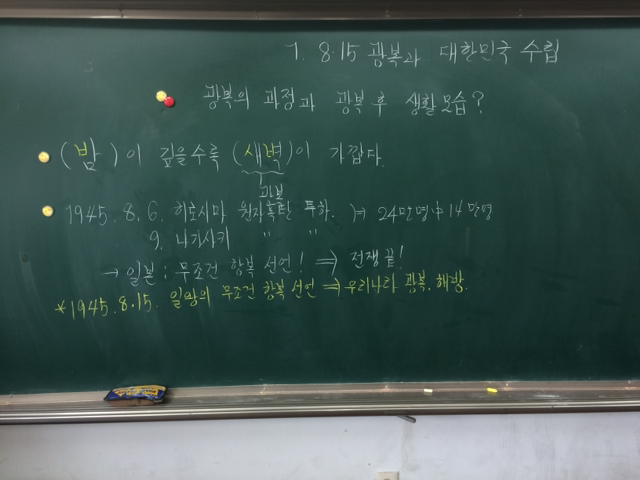 7. 8.15 광복과 대한민국 수립
광복의 과정과 광복 후 생활모습?
(밤)이 깊을수록 (새벽)이 가깝다.
광복
1945. 8. 6. 히로시마 원자폭탄 투하. 24만명中 14만명
9. 나가사키 〃 〃
→ 일본 : 무조건 항복 선언! ⇒ 전쟁 끝!
*1945. 8. 15. 일왕의 무조건 항복 선언 ⇒ 우리나라 광복. 해방.